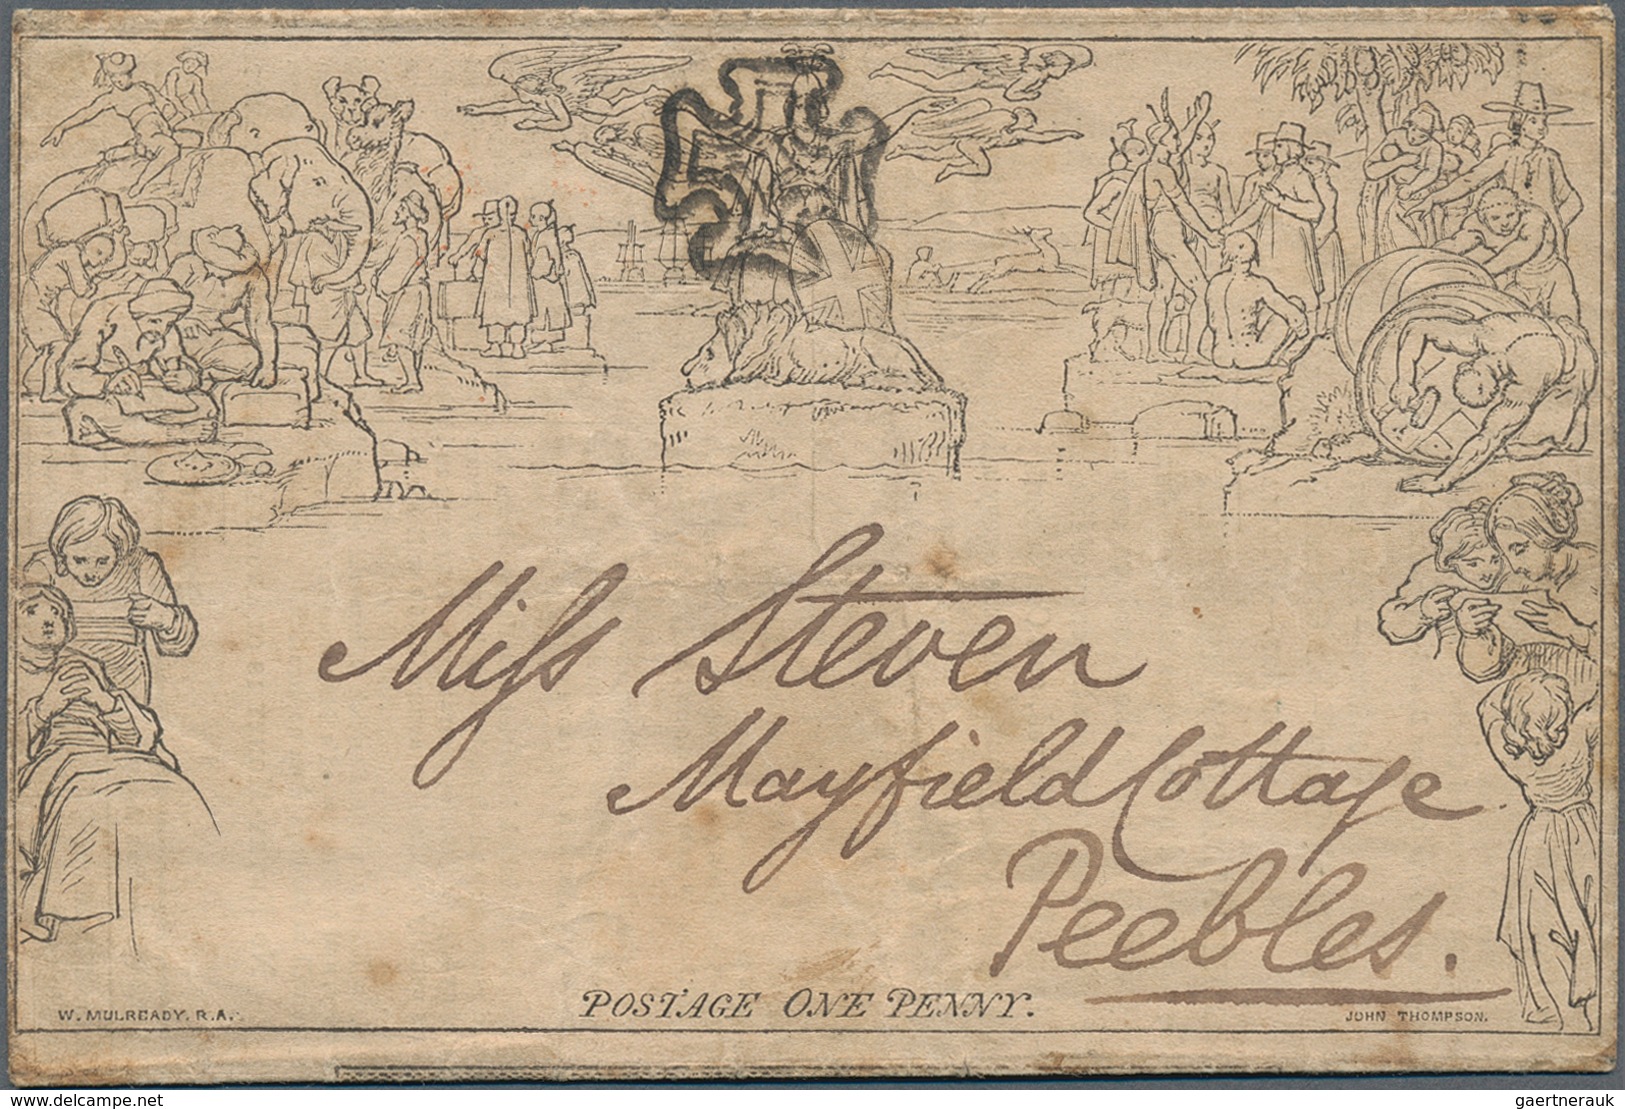 Miss Steven
Mayfield Cottage
Peebles.
POSTAGE ONE PENNY.
W. MULREADY. R.A.
JOHN THOMPSON.
delcampe.net
gaertnerauk